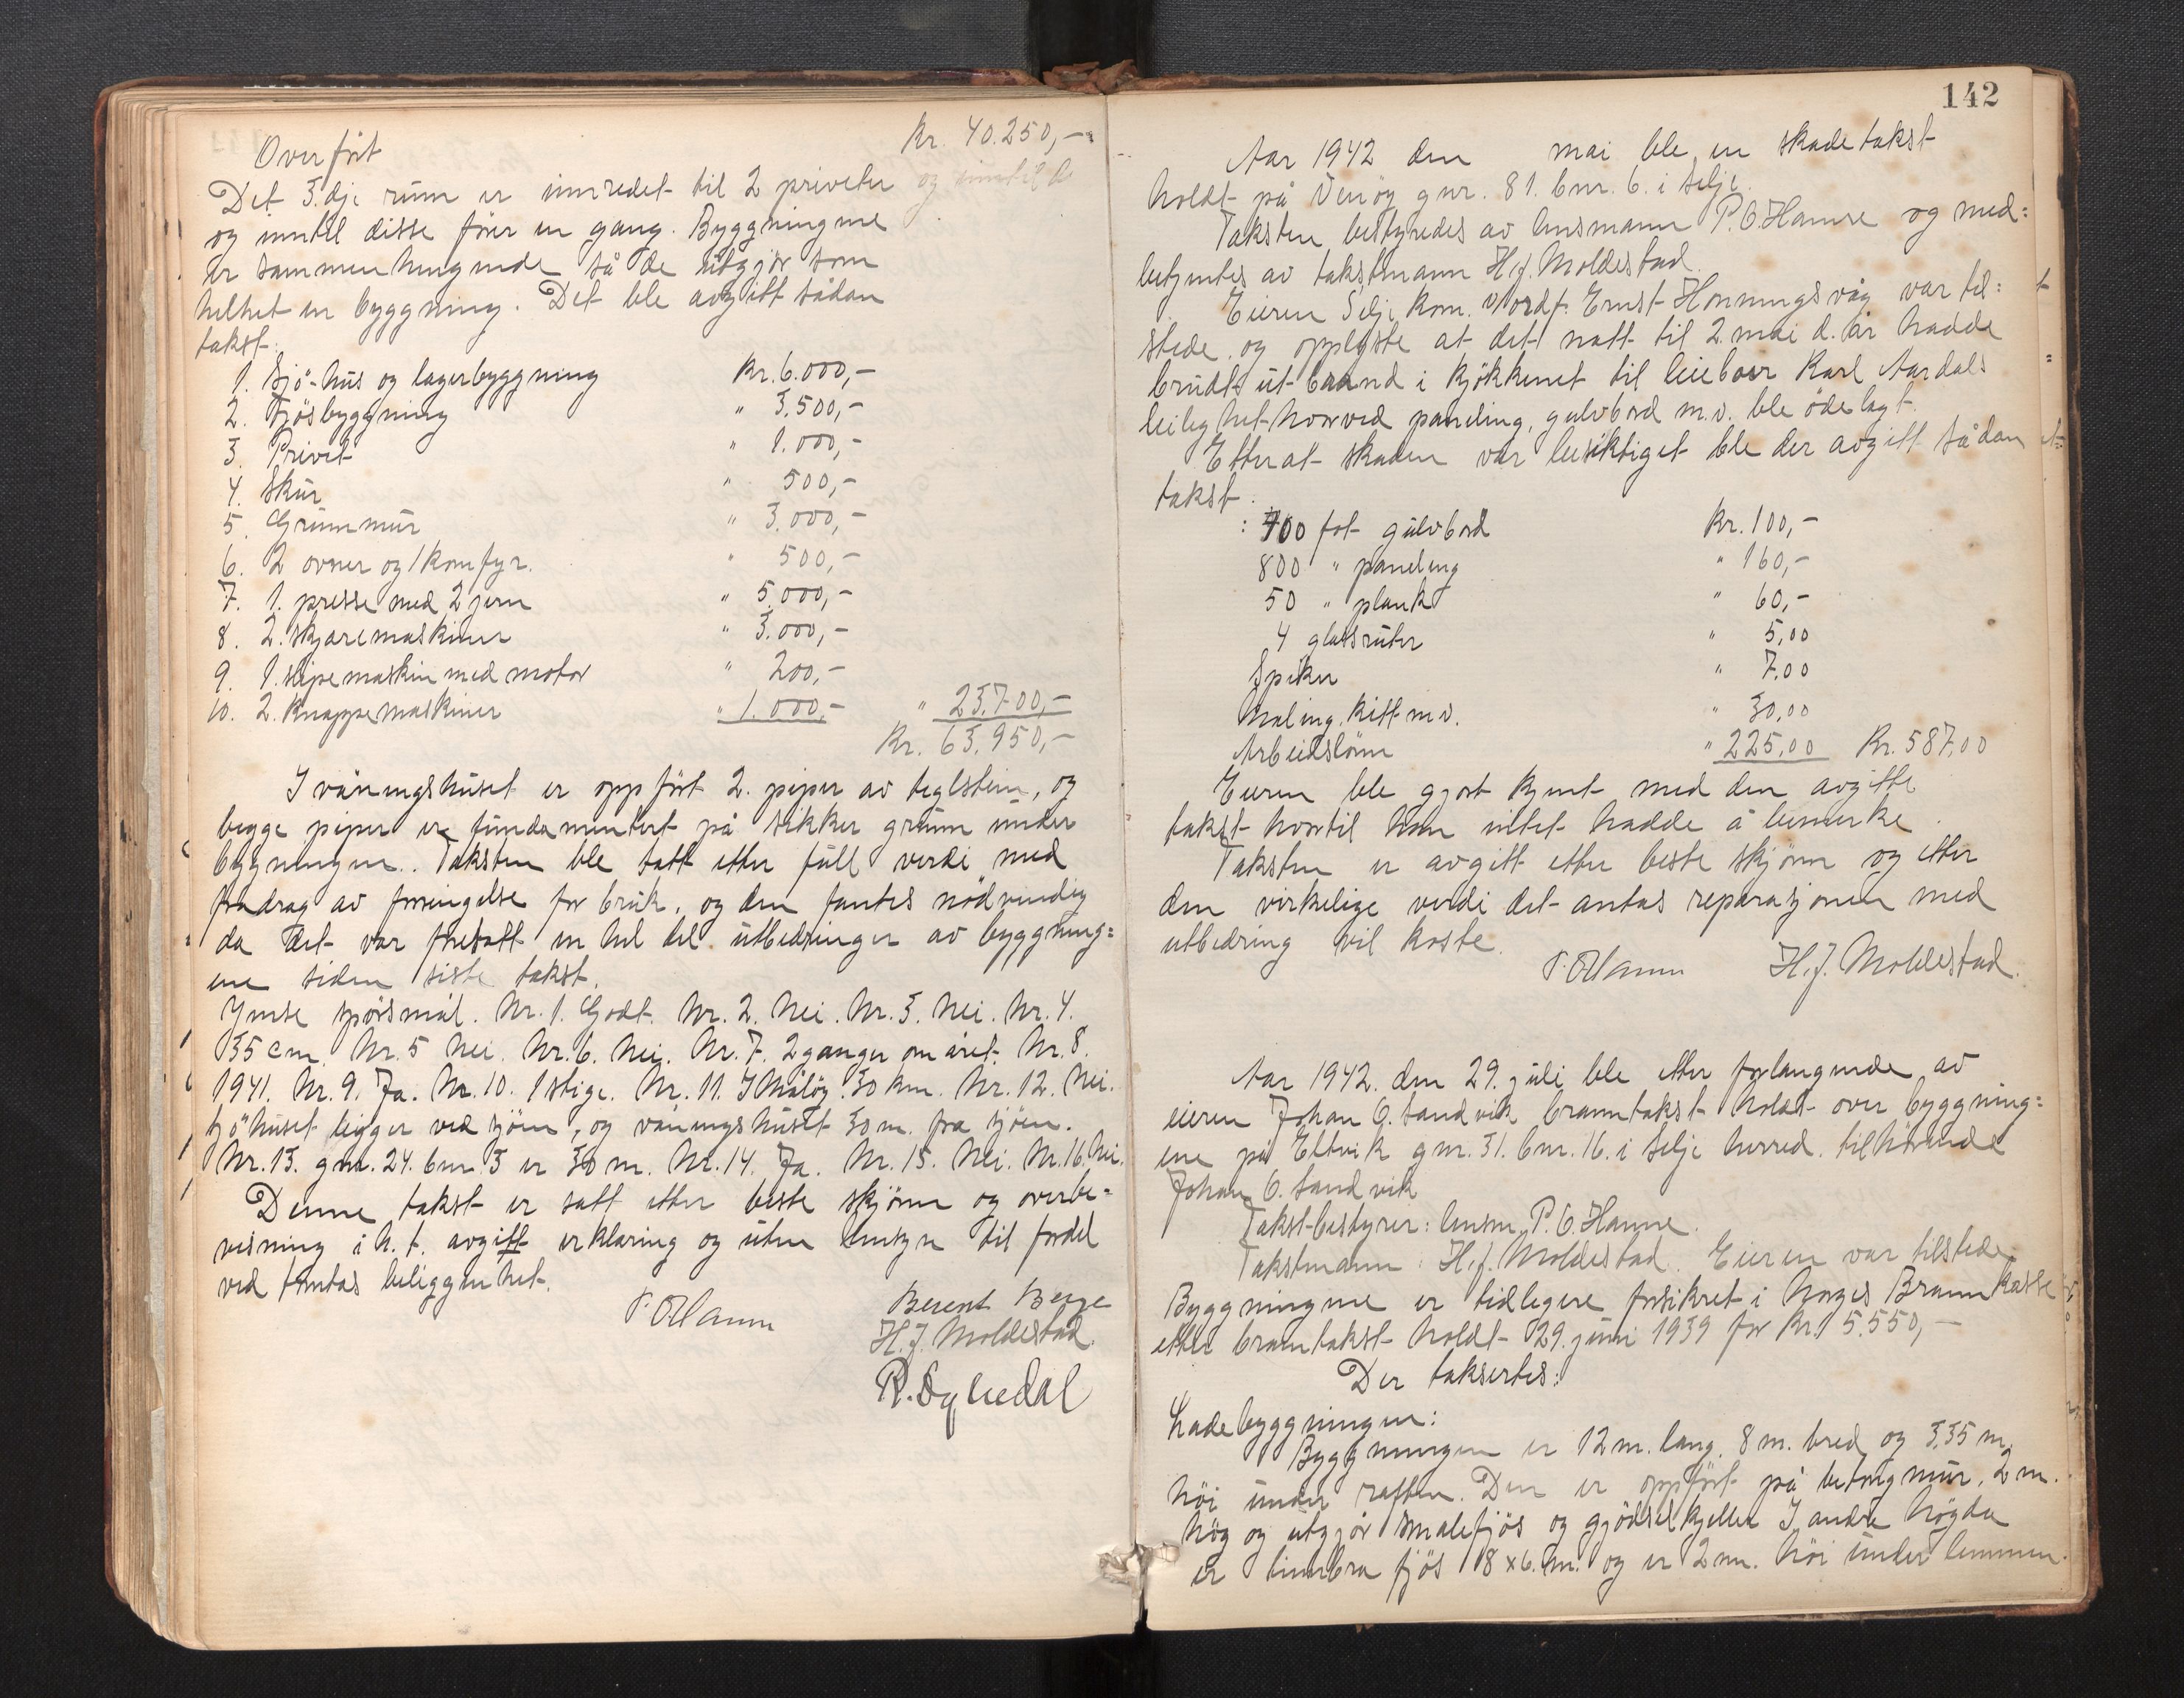 Overført Kr. 40.250,-
Det 3.dje rum er innredet til 2 priveter og inntil di
og inntil disse fører en gang. Byggningene
er sammenhengende så de utgjør som
helhet en byggning. Det ble avgitt sådan
takst:
1. Sjö-hus og lagerbyggning Kr. 6.000,-
2. Fjösbyggning " 3.500,-
3. Privet " 1.000,-
4. Skur " 500,-
5. Grunnmur " 3.000,-
6. 2 ovner og 1 komfyr. " 500,-
7. 1. presse med 2 jern " 5.000,-
8. 2. skjæremaskiner " 3.000,-
9. 1. slipemaskin med motor " 200,-
10. 2. knappemaskiner " 1.000,- " 23.700,-
Kr. 63.950,-
I våningshuset er oppfört 2. piper av teglstein, og
begge piper er fundamentert på sikker grunn under
bygningen. Taksten ble tatt etter full verdi med
fradrag av forringelse for bruk, og den fantes nödvendig
da det var foretatt en hel del utbedringer av byggning=
ene siden siste takst.
Ymse spörsmål. Nr. 1. Godt. Nr. 2. Nei. Nr. 3. Nei. Nr. 4.
35 cm. Nr. 5 Nei. Nr. 6. Nei. Nr. 7. 2 ganger om året. Nr. 8.
1941. Nr. 9. Ja. Nr. 10. 1 stige. Nr. 11. I Måløy. 30 km. Nr. 12. Nei.
Sjöhuset ligger ved sjöen, og våningshuset 30 m. fra sjöen.
Nr. 13. gnr. 24. bnr. 3 er 30 m. Nr. 14. Ja. Nr. 15. Nei. Nr. 16. Nei.
Denne takst er satt etter beste skjönn og overbe=
visning i h. t. avgitt erklæring og uten hensyn til fordel
ved tomtas beliggenhet.
P. O Hamre Berent Berge
H. J. Moldestad.
R.
142
Aar 1942 den mai ble en skadetakst
holdt på Venöy gnr. 81. bnr. 6. i Selje.
Taksten bestyredes av lensmann P. O. Hamre og med:
betjentes av takstmann H. J. Moldestad.
Eieren Selje kom. v/ordf. Ernst Honningsvåg var til:
stede, og opplyste at det natt til 2. mai d. år hadde
brudt ut brand i kjökkenet til leieboer Karl Aardals
leilighet hvorved paneling, gulvbord m.v. ble ödelagt.
Etterat skaden var besiktiget ble der avgitt sådan
takst:
: 400 fot gulvbord Kr. 100,-
800 " paneling " 160,-
50 " plank " 60,-
4 glassruter " 5,00
Spiker " 7,00
Maling, kitt m.v. " 30,00
Arbeidslönn " 225,00 Kr. 587,00
Eieren ble gjort kjent med den avgitte
takst hvortil han intet hadde å bemerke.
Taksten er avgitt etter beste skjönn og etter
den virkelige verdi det antas reparasjonen med
utbedring vil koste.
P. O Hamre H. J. Moldestad.
Aar 1942. den 29. juli ble etter forlangende av
eieren Johan O. Sandvik branntakst holdt over byggning=
ene på Eltvik gnr. 31. bnr. 16. i Selje herred. tilhörende
Johan O. Sandvik
Takst-bestyrer: lensm. P. O. Hamre.
Takstmann: H. J. Moldestad. Eieren var tilstede
Byggningene er tidligere forsikret i Norges Brannkasse
etter branntakst holdt 29. juni 1939 for Kr. 5.550,-
Der taksertes:
Ladebyggningen:
Byggningen er 12 m. lang. 8 m. bred og 3.35 m.
höi under raften. Den er oppfört på betongmur, 2 m.
hög og utgjør smalefjös og gjödselkjeller I andre høgda
er timbra fjös 8 x 6. m. og er 2 m. höi under lemmen.